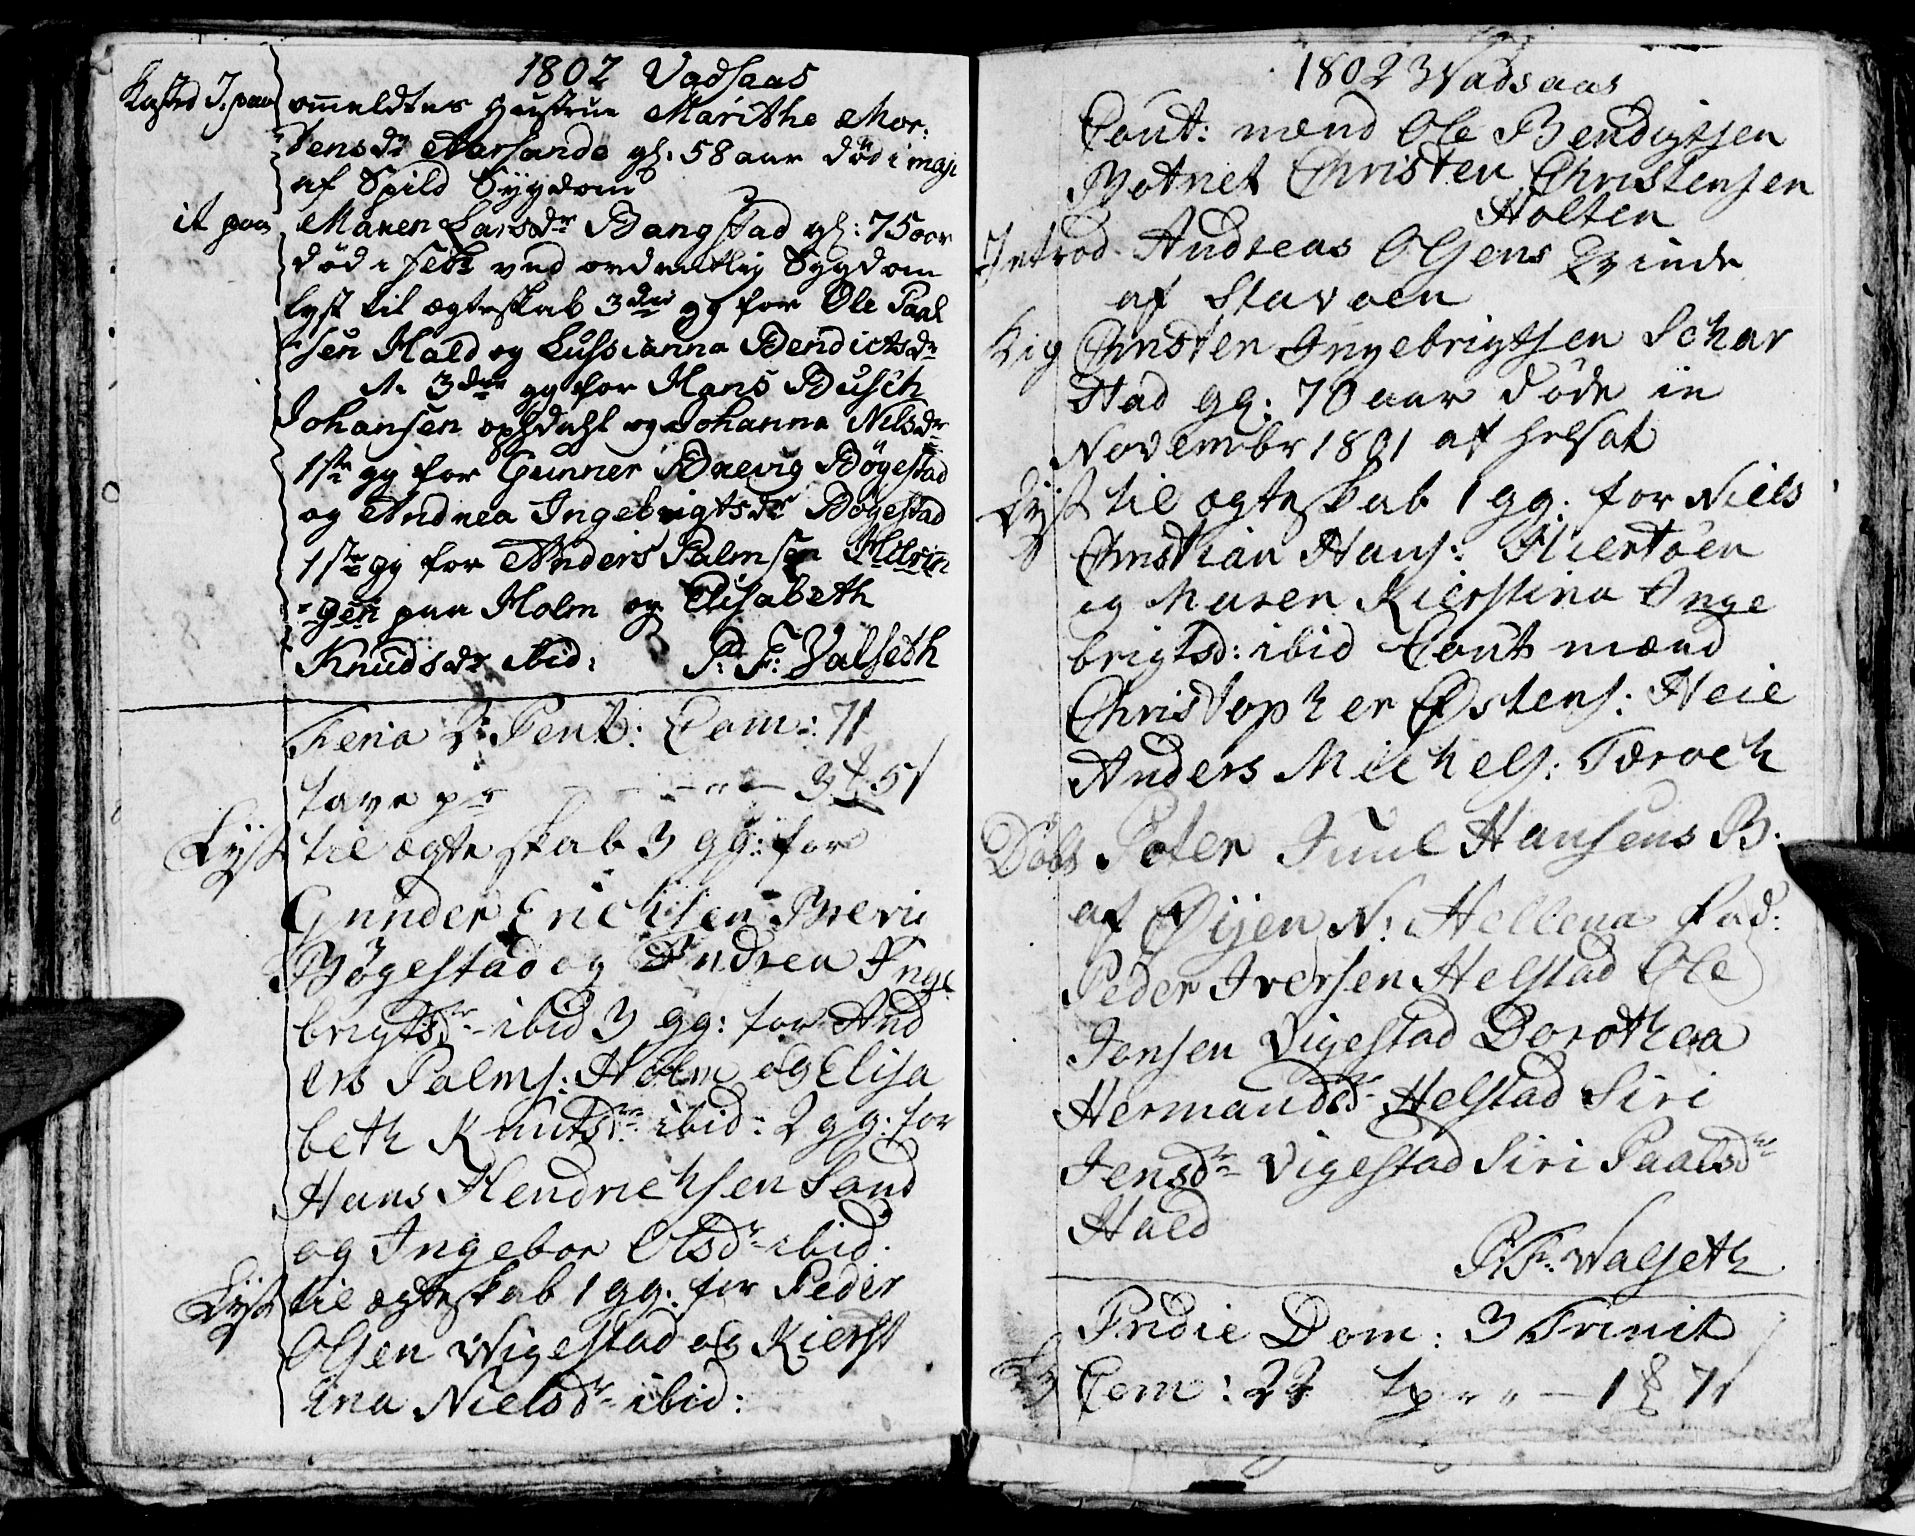 1802 Vadsaas
Kasted J. paa ommeldtes Hustrue Marithe Mor:
tensdr Aarsande gl: 58 aar død i maji
af Spild Sÿgdom
it paa Maren Larsdr Bangstad gl: 75 aar
død i febr ved ordentlig Sygdom
lyst til ægteskab 3die gg for Ole Paal
sen Hald og Lussianna Bendictsdr
it. 3die gg for Hans Busch
Johansen opsdahl og Johanna Nilsdr
1ste gg for Gunner Brevig Bögestad
og Andrea Ingebrigtsdr Bögestad
1ste gg for Anders Palmsen
gen paa Holm og Elisabeth
Knudsdr ibid: P: F: Valseth
Feria 2: Pent: Com: 71
tavn pr — 3 5
Lyst til ægteskab 3 gg: for
Gunder Erichsen Brevi
Bögestad og Andrea Inge
brigtsdr ibid 3 gg: for And
ers Palms: Holm og Elisa
beth Knutsdr ibid: 2 gg: for
Hans Hendrichsen Sand
og Ingebor Olsdr ibid.
Lyst til ægteskab 1 gg: for Peder
Olsen Wigestad og Kierst
ina Nielsdr ibid:
1802 Vadsaas
Cout: mænd Ole Bendigtsen
Botnet Christen Christensen
Holten
Introd. Andreas Olsens Qvinde
af Stavøen
Lig Christen Ingebrigtsen Schar
stad gg: 70 aar døde in
Novembr 1801 af helsot
Lyst til ægteskab 1 gg: for Niels
Christian Hans: Hiertøen
og Maren Kierstina Inge
brigtsd: ibid Cout mænd
Christopher Østens: Heie
Anders Michels: Terøch
Døbt Peter Juul Hansens B.
af Øijen N: Hellena fad:
Peder Iversen Helstad Ole
Jensen Vigestad Dorothea
Hermandsdr Helstad Siri
Jensdr Vigestad Siri Paalsdr
Hald
P: F: Walseth
Pridie Dom: 3 Trinit
Com: 22 — 1 71